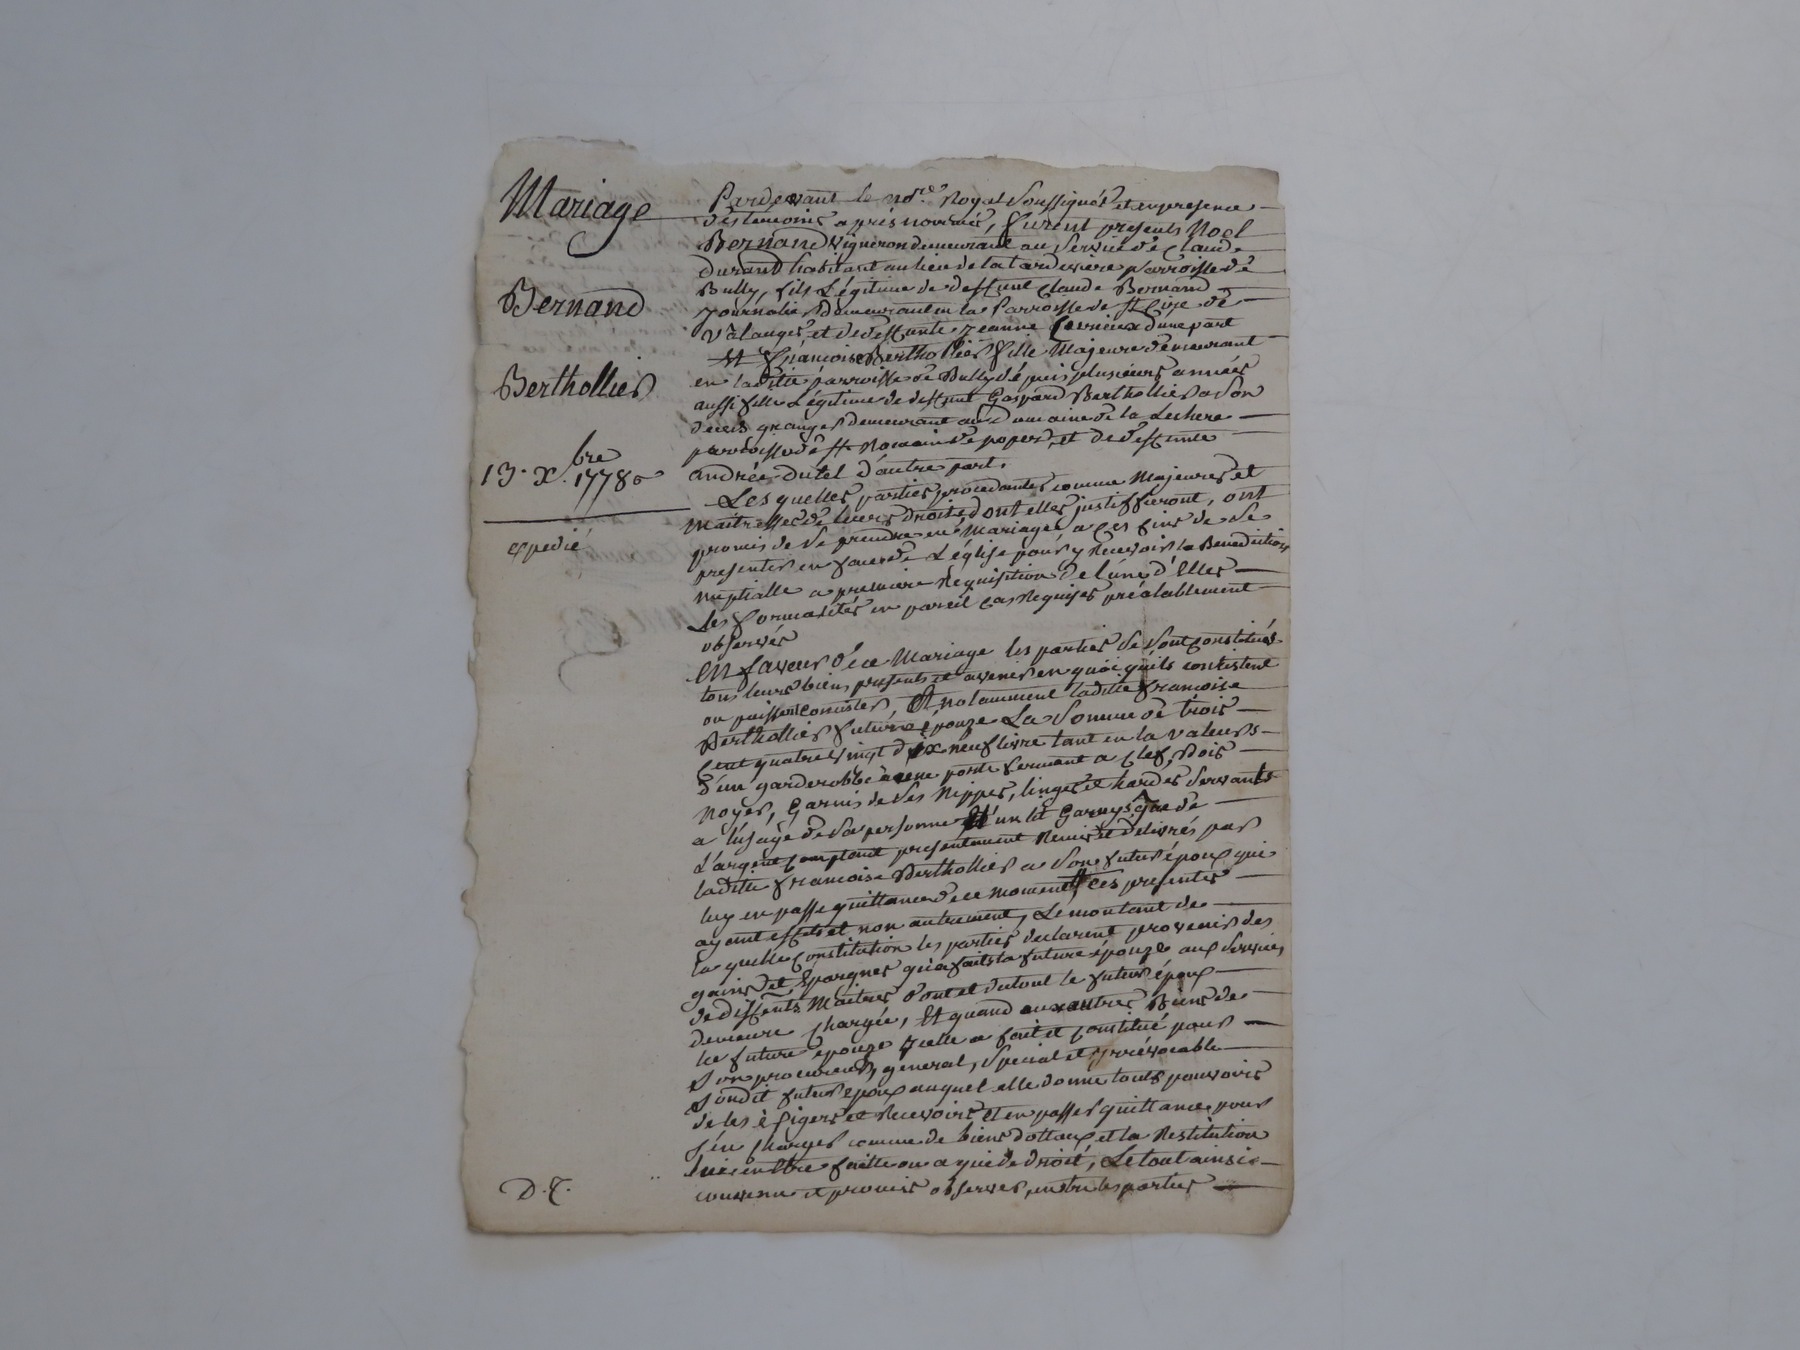 Mariage
Bernand
Berthollier
13. Xbre 1778
expedié
D. C.
Pardevant le nore. Royal soussigné et en presence
des temoins aprés nommés, furent presents Noel
Bernand vigneron demeurant au service de Claude
Durand habitant au lieu de la tardiviere parroisse de
Bully, fils Légitime de deffunt Claude Bernand
journalier demeurant en la Parroisse de st Cire de
Valanges, et de deffunte Jeanne d'une part
Et françoise Berthollier fille Majeure demeurant
en laditte parroisse de Bully dépuis plusieurs années
aussi fille Légitime de deffunt Gaspard Berthollier a son
decés granger demeurant au Domaine de la Lechere
parroisse de st Romain de popey, et de deffunte
andrée Dutel d'autre part.
Lesquelles parties procedantes comme Majeures et
Maitresses de leurs Droits dont elles justiffieront, ont
promis de se prendre en Mariage a ces fins de se
presenter en face de L'église pour y Recevoir la Benediction
nuptialle a premiere Requisition de l'une d'Elles
Les formalités en pareil cas Requises préalablement
observés
En faveur de ce Mariage les parties se sont constitués
tous leurs biens presents et avenir en quoi qu'ils consistent
ou puissent consister, Et notamment laditte françoise
Berthollier future épouze La Somme de trois
Cent quatre vingt dix neuf livre tant en la valeur
d'un garderobbe a une porte fermant a Clef, Bois
Noyer, Garnis de ses Nippes, linges et hardes servants
a l'usage de sa personne Et un lit Garnys que de
L'argent Comptant presentement Remis et delivrés par
laditte françoise Berthollier a son futur époux qui
luy en passe quittance de ce moment, Ces presentes
ayant effet et non autrement, Le montant de
la quelle Constitution les parties declarent provenir des
gains et Epargnes qu'a faits la future épouze aux services
de differents Maitres dont et du tout le futur époux
demeure Chargée, Et quand aux autres Biens de
la future épouze elle a fait et Constitué pour
son procureur general, special et irrévocable
sondit futur époux auquel elle donne touts pouvoirs
de les éxiger et Recevoir Et en passer quittance pour
s'en Charger comme de biens dottaux et la Restitution
en être faitte ou a qui de droit, Le tout ainsi
convenu et promis observer, entre les parties